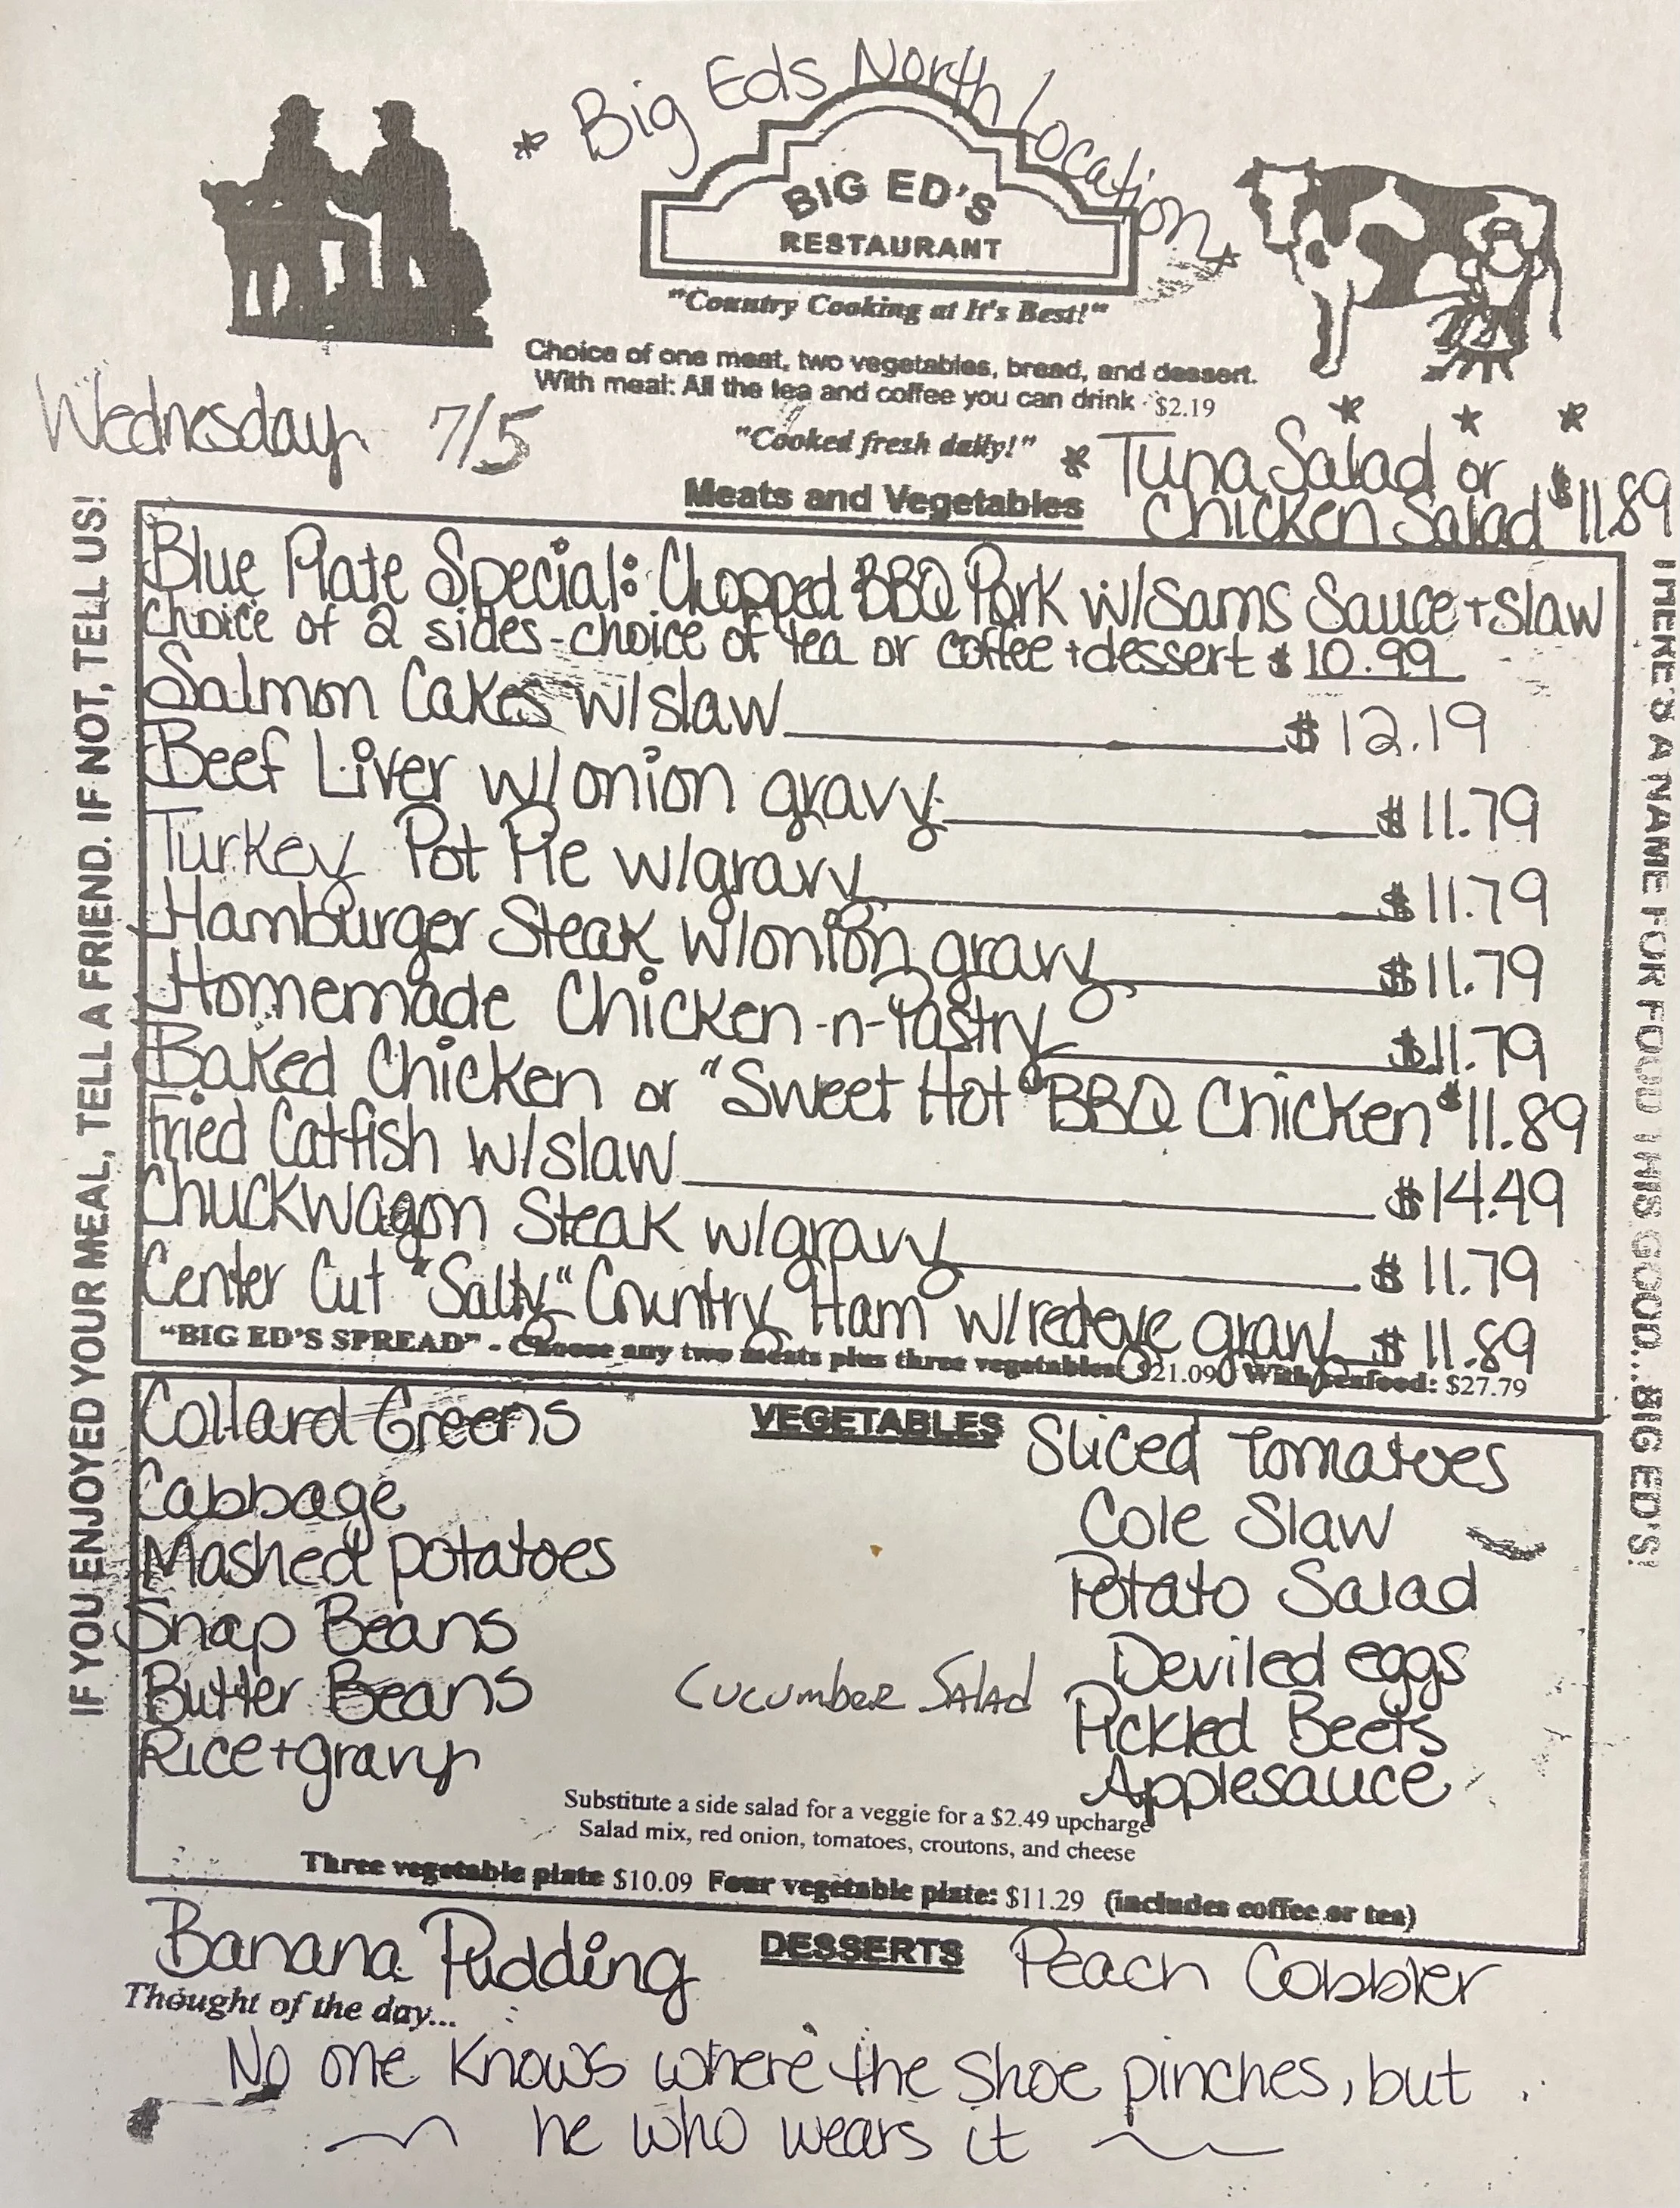 * Big Eds North Location *
BIG ED'S
RESTAURANT
"Country Cooking at It's Best!"
Choice of one meat, two vegetables, bread, and dessert.
With meal: All the tea and coffee you can drink - $2.19
Wednesday 7/5
"Cooked fresh daily!"
* Tuna Salad or
Chicken Salad $11.89
Meats and Vegetables
Blue Plate Special: Chopped BBQ Pork w/Sams Sauce + slaw
choice of 2 sides - choice of tea or coffee + dessert $10.99
Salmon Cakes w/slaw $12.19
Beef Liver w/onion gravy $11.79
Turkey Pot Pie w/gravy $11.79
Hamburger Steak w/onion gravy $11.79
Homemade Chicken-n-Pastry $11.79
Baked Chicken or "Sweet Hot" BBQ Chicken $11.89
Fried Catfish w/slaw $14.49
Chuckwagon Steak w/gravy $11.79
Center Cut "Salty" Country Ham w/redeye gravy $11.89
"BIG ED'S SPREAD" - Choose any two meats plus three vegetables $21.09 With seafood: $27.79
VEGETABLES
Collard Greens
Cabbage
Mashed potatoes
Snap Beans
Butter Beans
Rice + gravy
Cucumber Salad
Sliced Tomatoes
Cole Slaw
Potato Salad
Deviled eggs
Pickled Beets
Applesauce
Substitute a side salad for a veggie for a $2.49 upcharge
Salad mix, red onion, tomatoes, croutons, and cheese
Three vegetable plate $10.09 Four vegetable plate: $11.29 (includes coffee or tea)
DESSERTS
Banana Pudding
Peach Cobbler
Thought of the day...
No one knows where the shoe pinches, but
he who wears it
IF YOU ENJOYED YOUR MEAL, TELL A FRIEND. IF NOT, TELL US!
THERE'S A NAME FOR FOOD THIS GOOD...BIG ED'S!